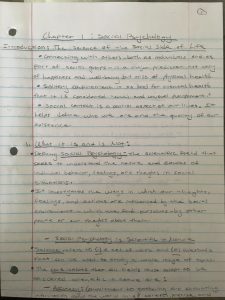 Chapter 1: Social Psychology
Introduction: The Science of the Social Side of Life
• Connecting with others both as individuals and as
part of social groups is a major predictor not only
of happiness and well-being but also of physical health
• Solitary confinement is so bad for mental health
that it is considered cruel and unusual punishment
• Social context is a central aspect of our lives. It
helps define who we are and the quality of our
existence
What it is and is Not:
• Defining Social Psychology: The scientific field that
seeks to understand the nature and causes of
individual behavior, feelings, and thoughts in social
situations
• It investigates the ways in which our thoughts,
feelings, and actions are influenced by the social
environments in which we find ourselves by other
people or our thoughts about them
- Social Psychology is Scientific in Nature
Science refers to
can be used to study a wide range of topics
• The core values that all fields must adopt to be
considered scientific in nature are:
- Accuracy: commitment to gathering and evaluating